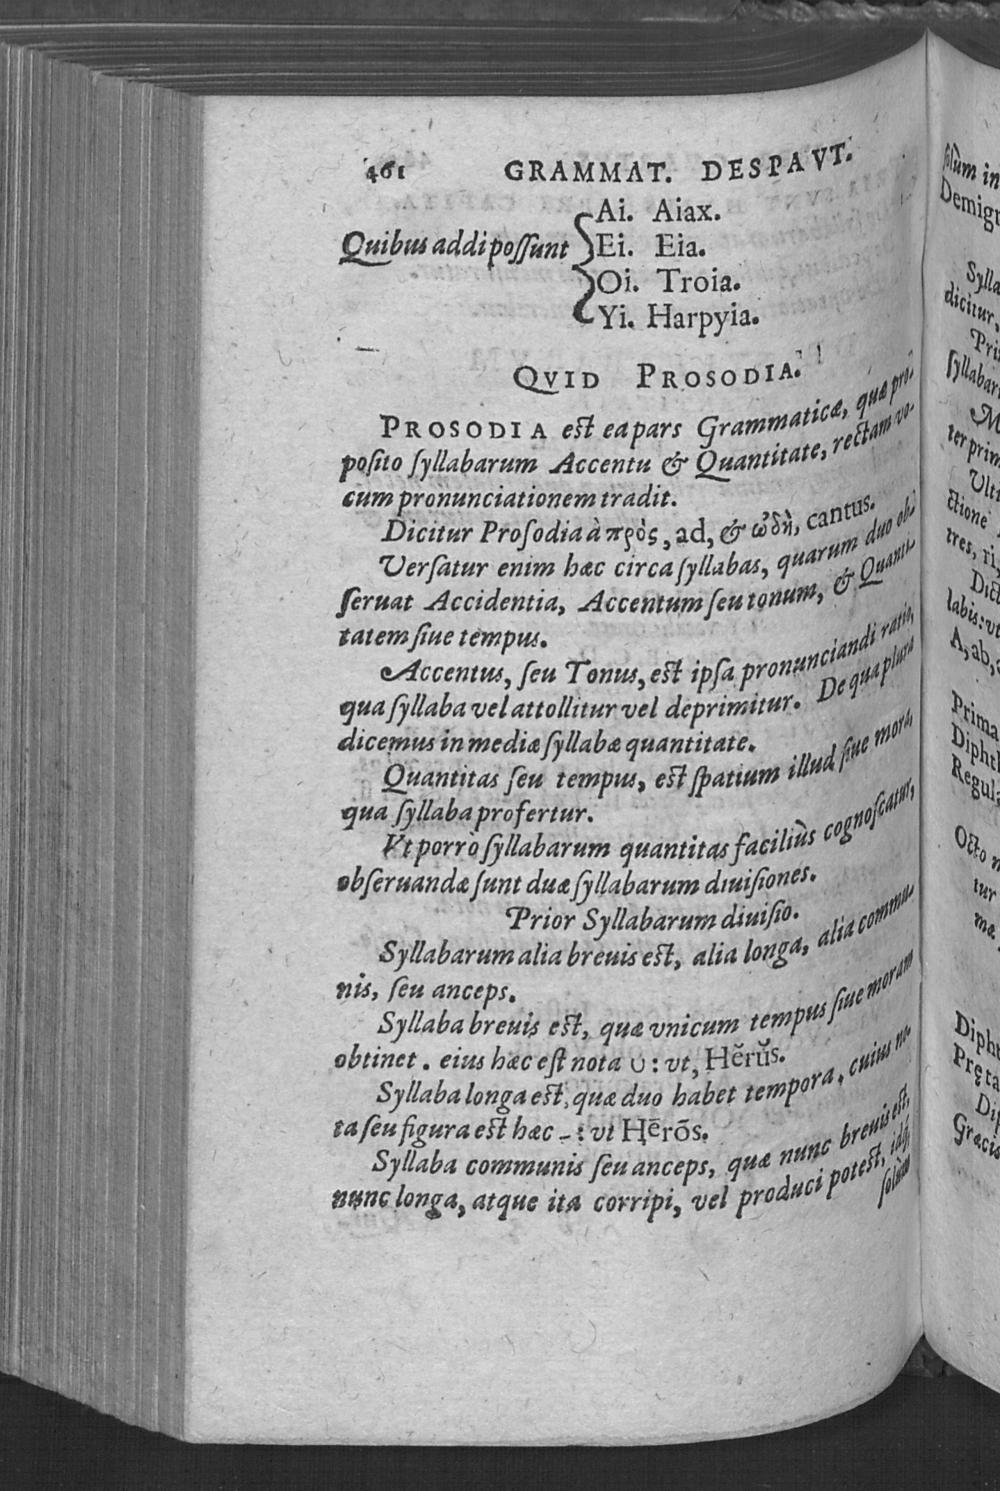 461 GRAMMAT. DESPAVT.
Ai. Aiax.
Quibus addi possunt Ei. Eia.
Oi. Troia.
Yi. Harpyia.
QVID PROSODIA.
PROSODIA est ea pars Grammaticæ, quæ pro-
posito syllabarum Accentu & Quantitate, rectam vo-
cum pronunciationem tradit.
Dicitur Prosodia à πρὸς, ad, & ᾠδὴ, cantus.
Versatur enim hæc circa syllabas, quarum duo ob-
seruat Accidentia, Accentum seu tonum, & Quanti-
tatem siue tempus.
Accentus, seu Tonus, est ipsa pronunciandi ratio,
qua syllaba vel attollitur vel deprimitur. De qua plura
dicemus in mediæ syllabæ quantitate.
Quantitas seu tempus, est spatium illud siue mora,
qua syllaba profertur.
Vt porrò syllabarum quantitas faciliùs cognoscatur,
obseruandæ sunt duæ syllabarum diuisiones.
Prior Syllabarum diuisio.
Syllabarum alia breuis est, alia longa, alia commu-
nis, seu anceps.
Syllaba breuis est, quæ vnicum tempus siue moram
obtinet. eius hæc est nota ᴗ: vt, Hĕrŭs.
Syllaba longa est, quæ duo habet tempora, cuius no-
ta seu figura est hæc -: vt Hērōs.
Syllaba communis seu anceps, quæ nunc breuis est,
nunc longa, atque ita corripi, vel produci potest, idq́;
solùm
solùm in
Demigr
Sylla
dicitur,
Pri
syllabar
M
ter prim
Vlti
ctione
tres, ri,
Dict
labis: vt
A, ab,
Prima
Dipht
Regula
Octo
tur
mæ
Dipht
Pręta
Dip
Græcis